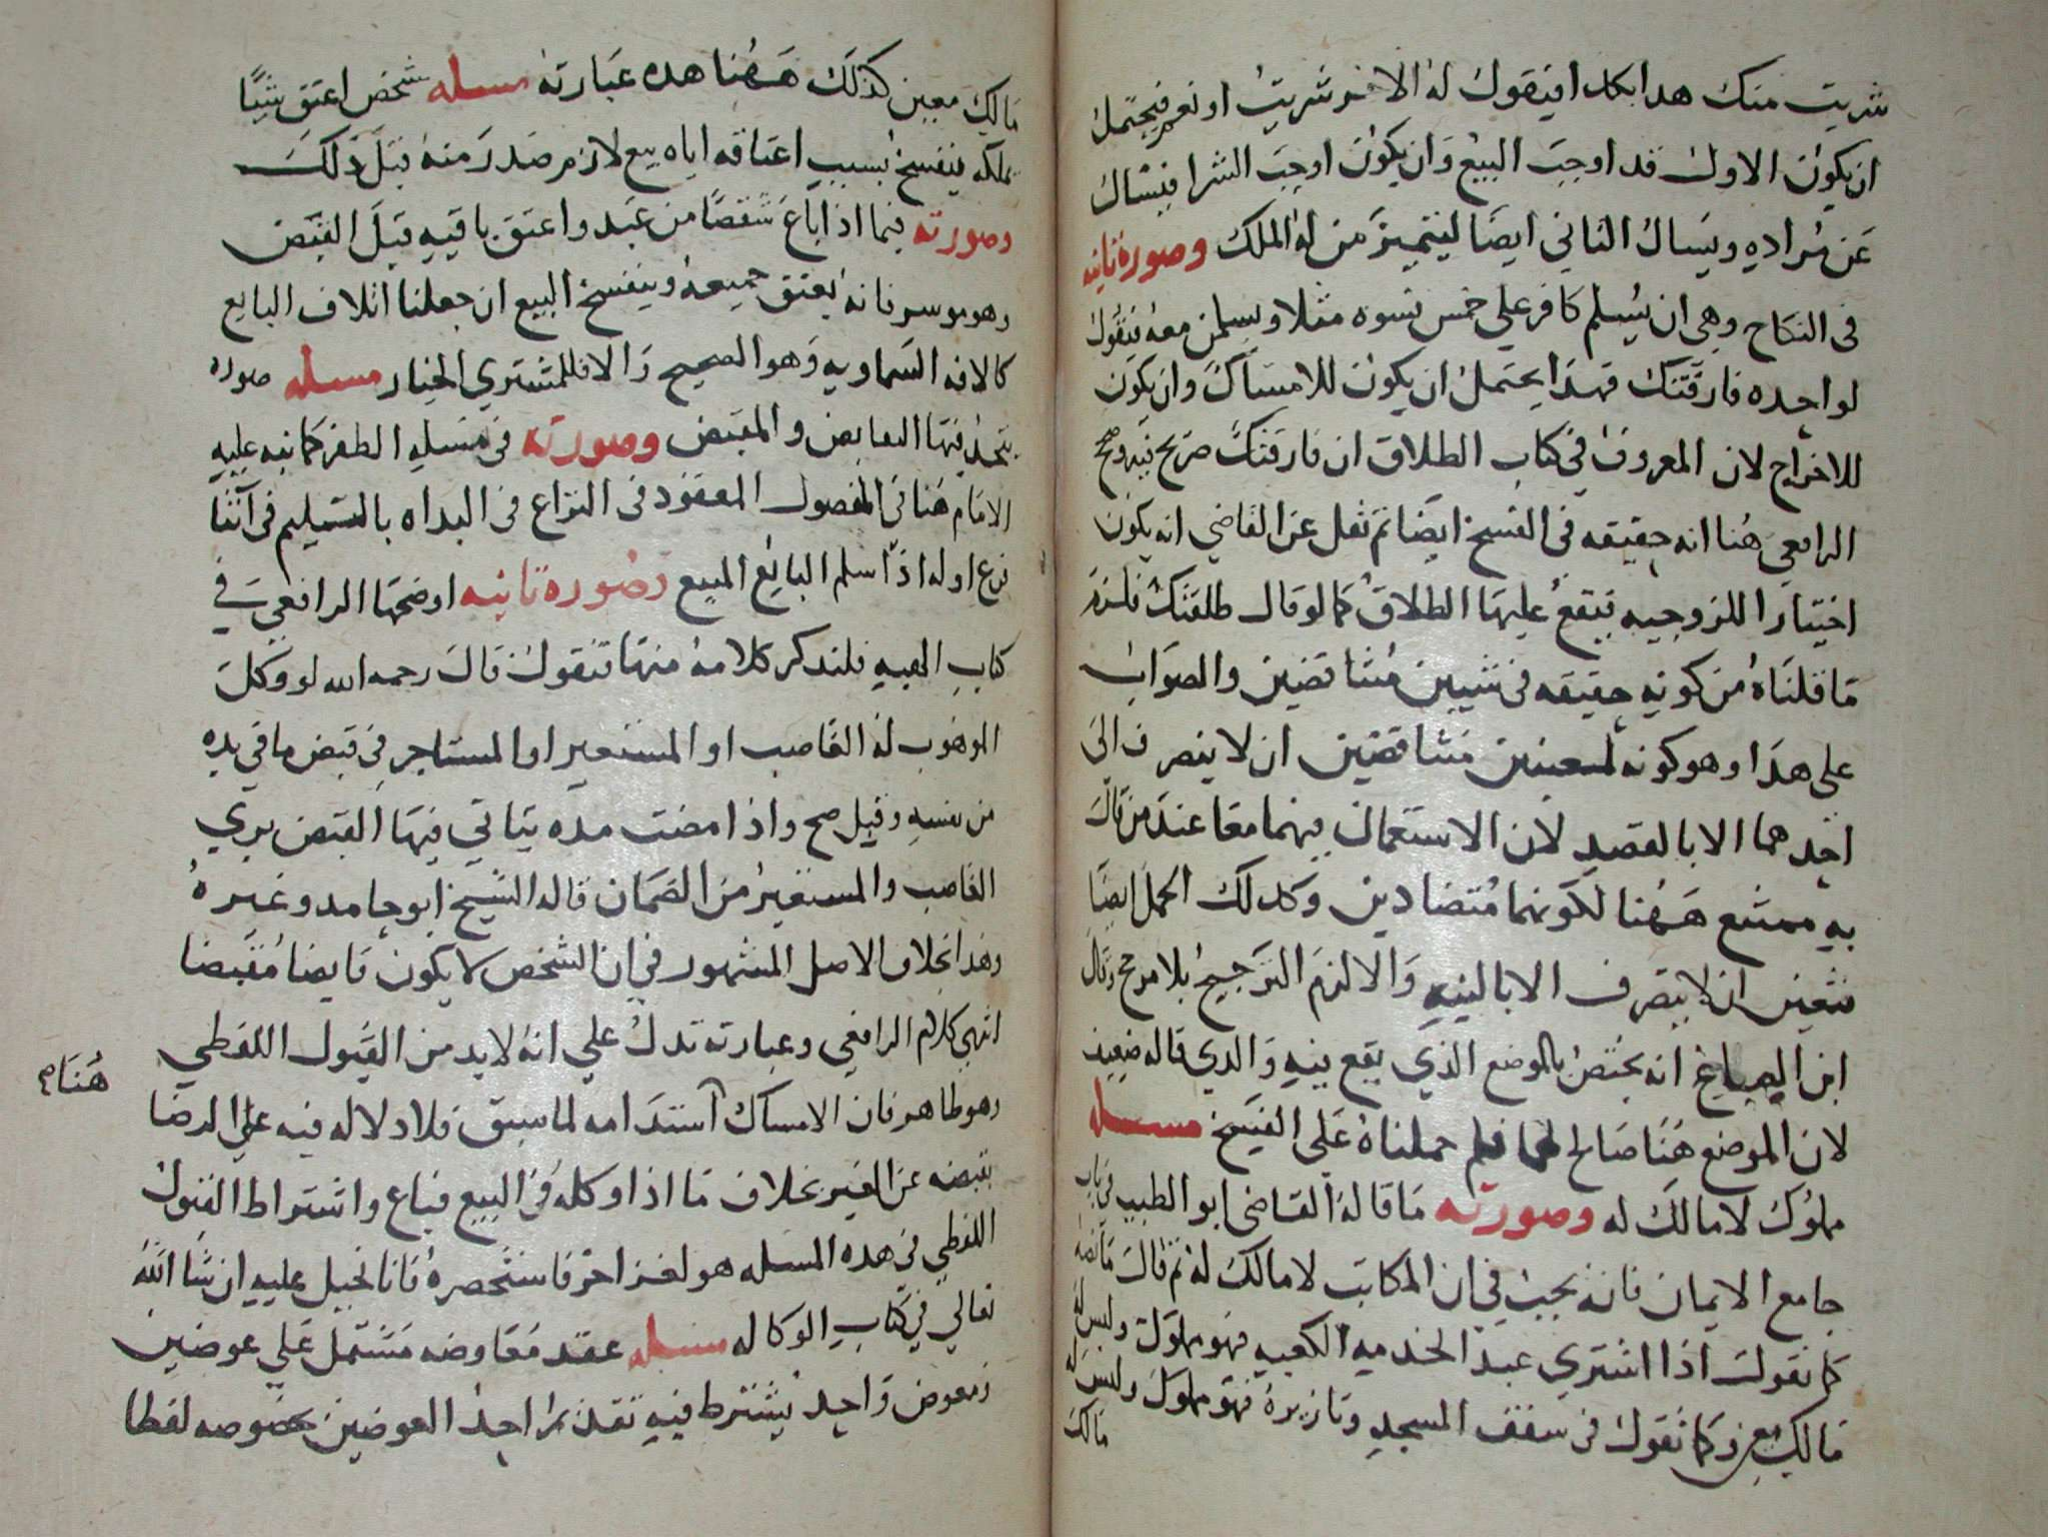 شريت منك هدا بكدا فيقول له الاخر شريت او نعم فيحتمل
ان يكون الاول قد اوجب البيع وان يكون اوجب الشرا فيسال
عن مراده ويسال الثاني ايضا ليتميز من له الملك وصوره ثانيه
فى النكاح وهى ان يسلم كافر على خمس نسوه مثلا ويسلمن معه فيقول
لواحده فارقتك فهدا يحتمل ان يكون للامساك وان يكون
للاخراج لان المعروف في كتاب الطلاق ان فارقتك صريح فيه وصحح
الرافعي هنا انه حقيقه فى الفسخ ايضا ثم نقل عن القاضى انه يكون
اختيارا للزوجيه فيقع عليها الطلاق كما لو قال طلقتك فلزم
ما قلناه من كونه حقيقه فى شيين متناقضين والصواب
على هدا وهو كونه لمعنيين متناقضين ان لا ينصرف الى
احدهما الا بالقصد لان الاستعمال فيهما معا عند من قال
به ممتنع ههنا لكونهما متضادين وكدلك الحمل ايضا
فتعين ان لا يتصرف الا بالنيه والا لزم الترجيح بلا مرجح وقال
ابن الصباغ انه يختص بالموضع الذي يقع فيه والدي قاله ضعيف
لان الموضع هنا صالح لهما فلم حملناه على الفسخ مسله
مملوك لا مالك له وصورته ما قاله القاضى ابو الطيب في باب
جامع الايمان فانه بحث في ان المكاتب لا مالك له ثم قال ما نصه
كما نقول اذا اشترى عبد الخدمه الكعبه فهو مملوك وليس له
مالك معين وكما نقول فى سقف المسجد وتازيره فهو مملوك وليس له
مالك
مالك معين كذلك ههنا هده عبارته مسله شخص اعتق شيا
يملكه ينفسخ بسبب اعتاقه اياه بيع لازم صدر منه قبل ذلك
وصورته فيما اذا باع شقصا من عبد واعتق باقيه قبل القبض
وهو موسر فانه يعتق جميعه وينفسخ البيع ان جعلنا اتلاف البايع
كالافه السماويه وهو الصحيح والا فللمشتري الخيار مسله صوره
يتحد فيها القابض والمقبض وصورته فى مسله الظفر كما نبه عليه
الامام هنا في الفصول المعقود فى النزاع فى البداه بالتسليم فى اثنا
فرع اوله اذا سلم البايع المبيع وصوره ثانيه اوضحها الرافعي في
كتاب الهبه فلندكر كلامه منها فنقول قال رحمه الله لو وكل
الموهوب له الغاصب او المستعير او المستاجر في قبض ما في يده
من نفسه وقيل صح واذا مضت مده يتاتي فيها القبض بري
الغاصب والمستعير من الضمان قاله الشيخ ابو حامد وغيره
وهدا بخلاف الاصل المشهور في ان الشخص لا يكون قابضا مقبضا
انتهى كلام الرافعي وعبارته تدل علي انه لا بد من القبول اللفظي
هنا
وهو ظاهر فان الامساك استدامه لما سبق فلا دلاله فيه على الرضا
بقبضه عن الغير بخلاف ما اذا وكله في البيع فباع واشتراط القبول
اللفظي في هده المسله هو لغز اخر فاستحضره فانا نحيل عليه ان شا الله
تعالي في كتاب الوكاله مسله عقد معاوضه مشتمل على عوضين
ومعوض واحد يشترط فيه تقدير احد العوضين بخصوصه لفظا